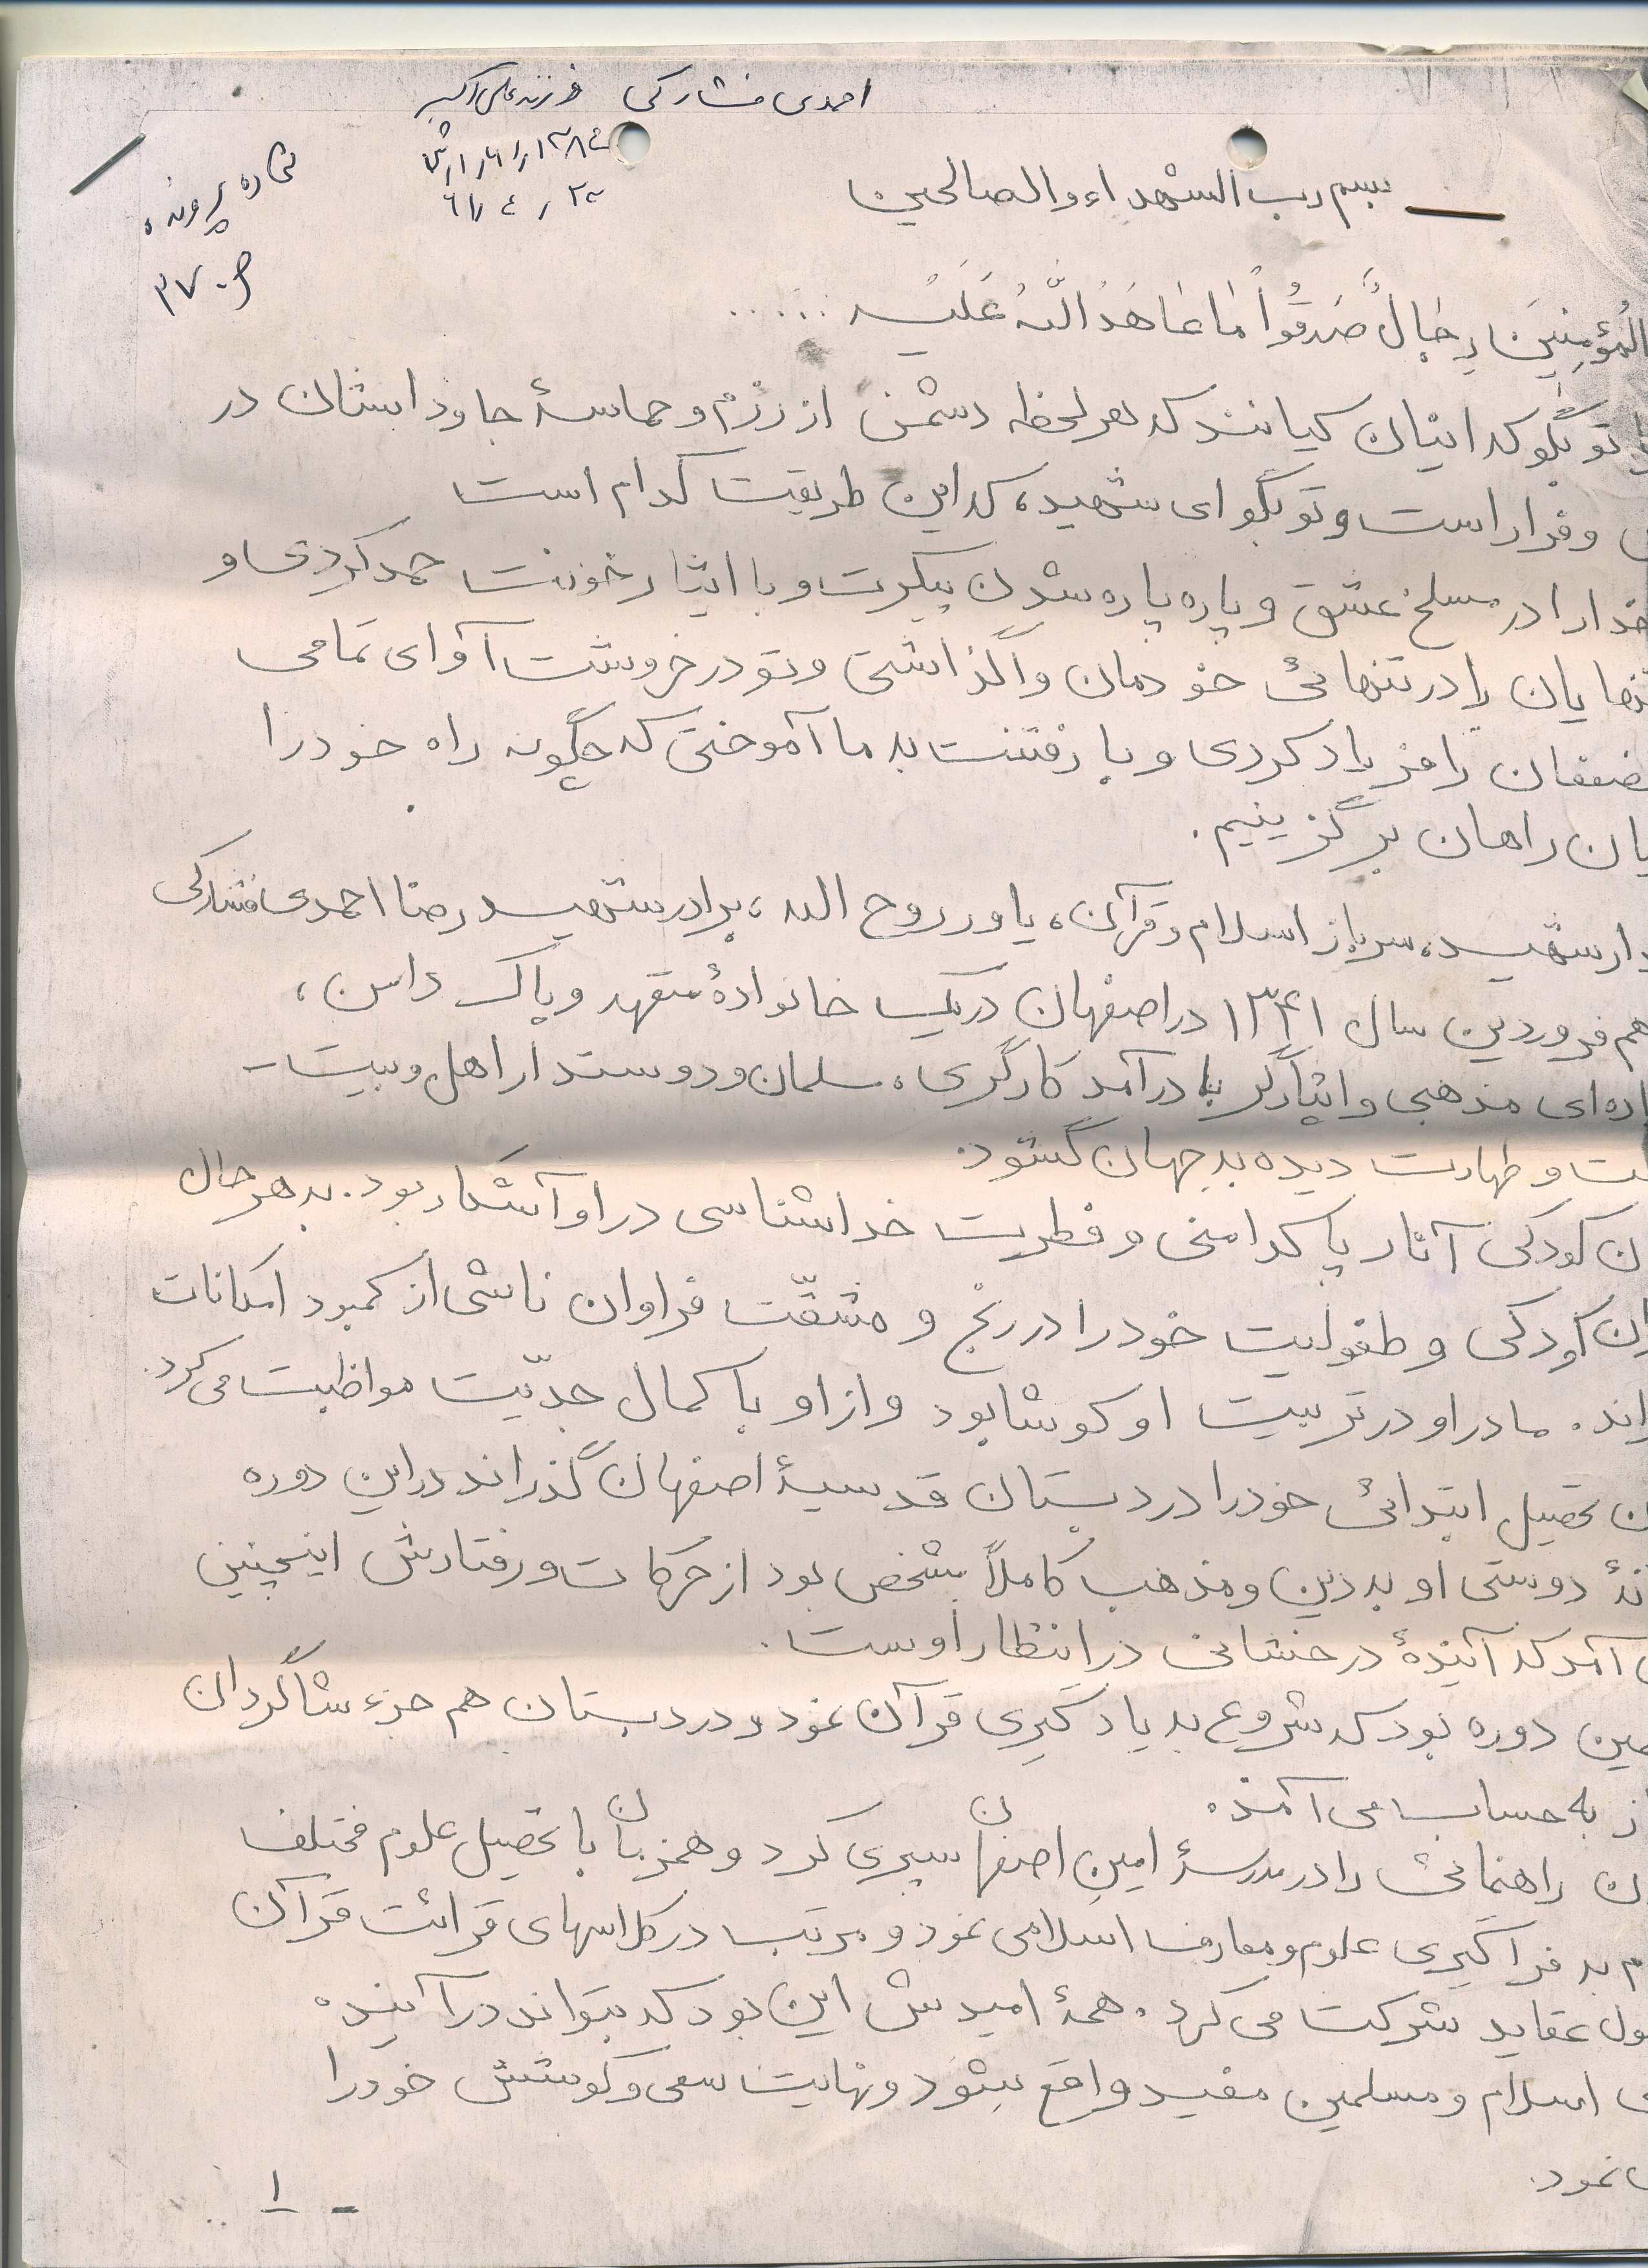 احمدی فشارکی فرزند علی اکبر
شماره پرونده
بسم رب الشهداء والصالحین
المُؤمِنینَ رِجالٌ صَدَقُوا ما عاهَدُ اللّهَ عَلَیْه ......
تو بگو که اینان کیانند که هر لحظه دشمن از رزم و حماسۀ جاودانشان در
و فرار است و تو بگو ای شهید، که این طریقت کدام است
خدا را در مسلخ عشق و پاره پاره شدن پیکرت و با ایثار خونت حمد کردی و
را در تنهائی خودمان واگذاشتی و تو در خروشت آوای تمامی
را فریاد کردی و با رفتنت به ما آموختی که چگونه راه خود را
راهان برگزینیم.
شهید، سرباز اسلام و قرآن، یاور روح الله، برادر شهید رضا احمدی فشارکی
فروردین سال ۱۳۴۱ در اصفهان در یک خانوادۀ متعهد و پاک دامن،
مذهبی و ایثارگر با درآمد کارگری، مسلمان و دوستدار اهل و بیت -
و طهارت دیده به جهان گشود.
کودکی آثار پاکدامنی و فطرت خداشناسی در او آشکار بود. به هر حال
کودکی و طفولیت خود را در رنج و مشقّت فراوان ناشی از کمبود امکانات
مادر او در تربیت او کوشا بود و از او با کمال جدّیت مواظبت می کرد.
تحصیل ابتدائی خود را در دبستان قدسیۀ اصفهان گذراند در این دوره
دوستی او به دین و مذهب کاملاً مشخص بود از حرکات و رفتارش اینچنین
آمد که آیندۀ درخشانی در انتظار اوست.
دوره بود که شروع به یادگیری قرآن نمود و در دبستان هم جزء شاگردان
به حساب می آمد.
راهنمائی را در مدرسۀ امین اصفهان سپری کرد و همزمان با تحصیل علوم مختلف
به فراگیری علوم و معارف اسلامی نمود و مرتب در کلاسهای قرائت قرآن
عقاید شرکت می کرد. همۀ امیدش این بود که بتواند در آینده
اسلام و مسلمین مفید واقع بشود و نهایت سعی و کوشش خود را
نمود.
- ۱